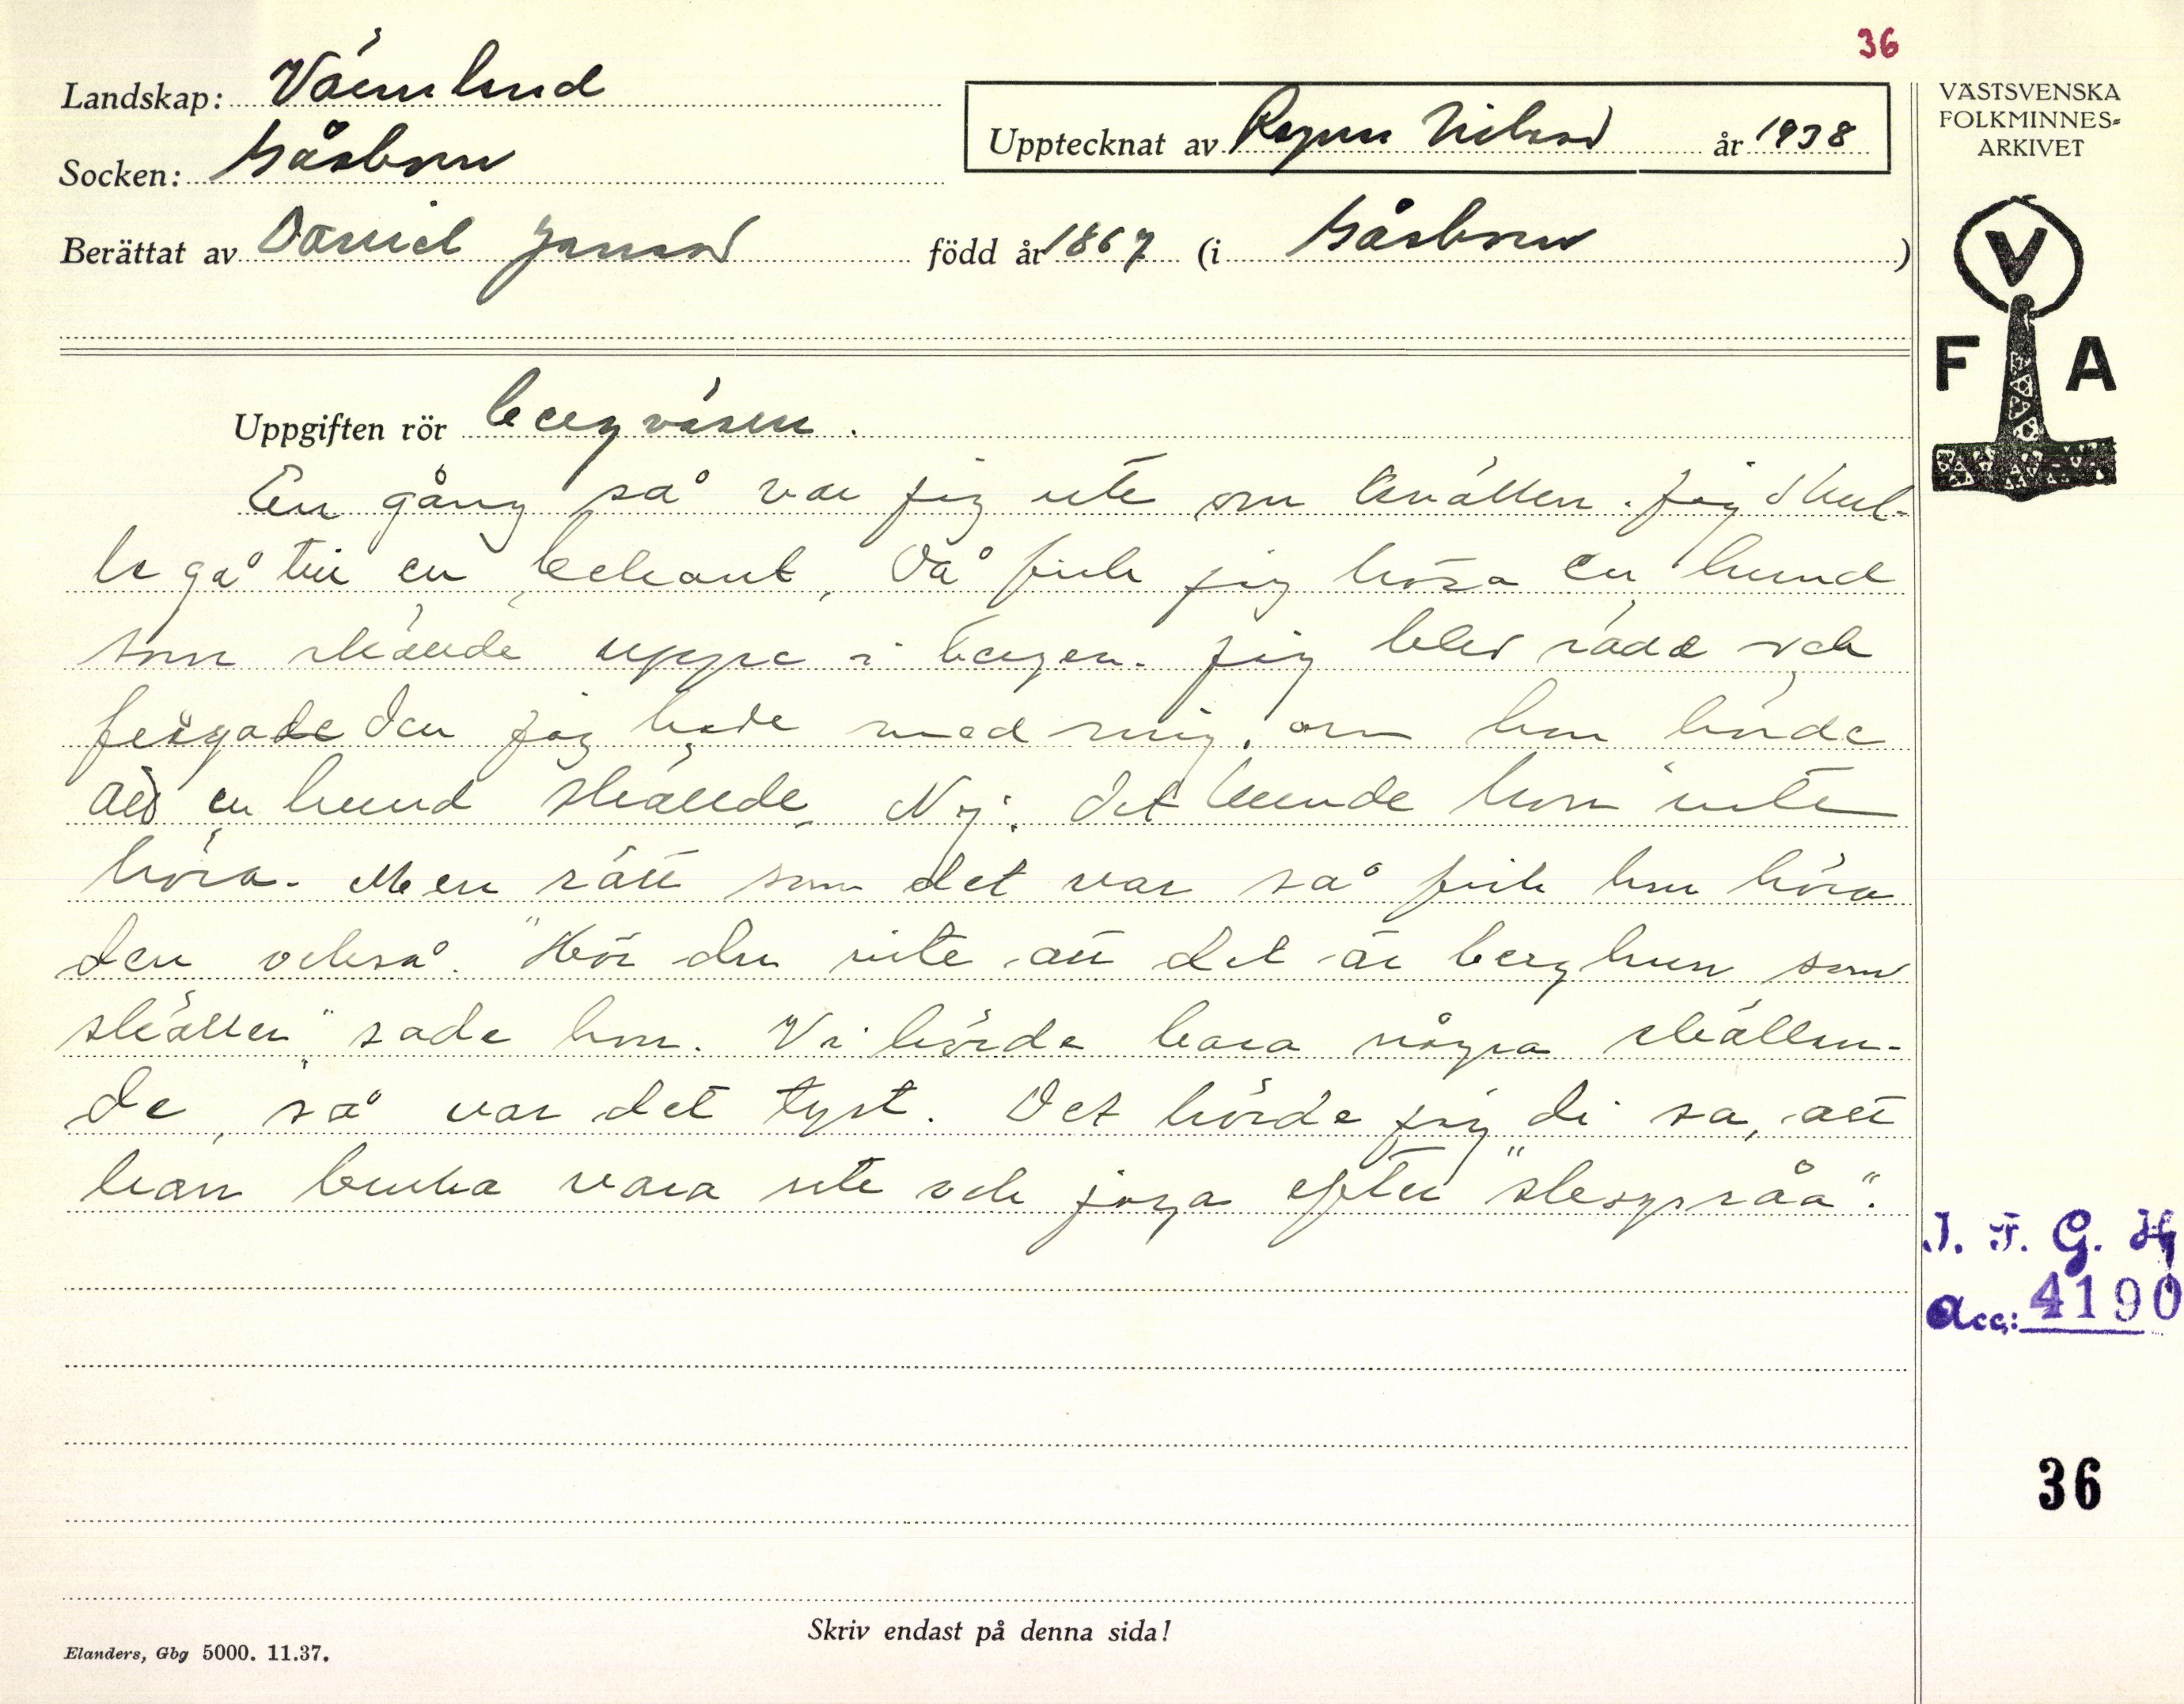 36
Landskap: Värmland
Upptecknat av Ragnar Nilsson år 1938
Socken: Gåsborn
Berättat av Daniel Jansson född år 1867 (i Gåsborn)
VÄSTSVENSKA
FOLKMINNES-
ARKIVET
V
F A
Uppgiften rör bergväsen.
En gång så var jag ute om kvällen. Jag skul-
le gå till en bekant. Då fick jag höra en hund
som skällde uppe i bergen. Jag blev rädd och
frågade den jag hade med mig, om hon hörde
att en hund skällde. Nej. Det kunde hon inte
höra. Men rätt som det var så fick hon höra
den också. "Hör du inte att det är berghun som
skäller" sade hon. Vi hörde bara några skällan-
de, så var det tyst. Det hörde jag di sa, att
han bruka vara ute och jaga efter "skogsråa".
I. F. G. H
Acc: 4190
36
Skriv endast på denna sida!
Elanders, Gbg 5000. 11.37.